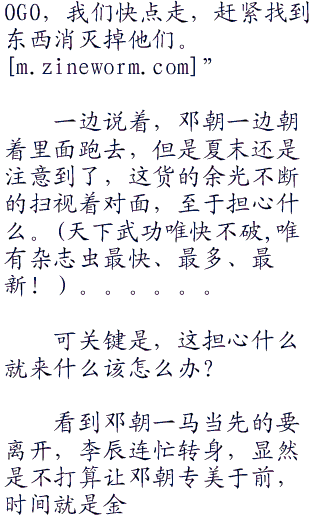 OGO，我们快点走，赶紧找到
东西消灭掉他们。
[m.zineworm.com]”
一边说着，邓朝一边朝
着里面跑去，但是夏末还是
注意到了，这货的余光不断
的扫视着对面，至于担心什
么。(天下武功唯快不破,唯
有杂志虫最快、最多、最
新！)。。。。。。
可关键是，这担心什么
就来什么该怎么办？
看到邓朝一马当先的要
离开，李辰连忙转身，显然
是不打算让邓朝专美于前，
时间就是金